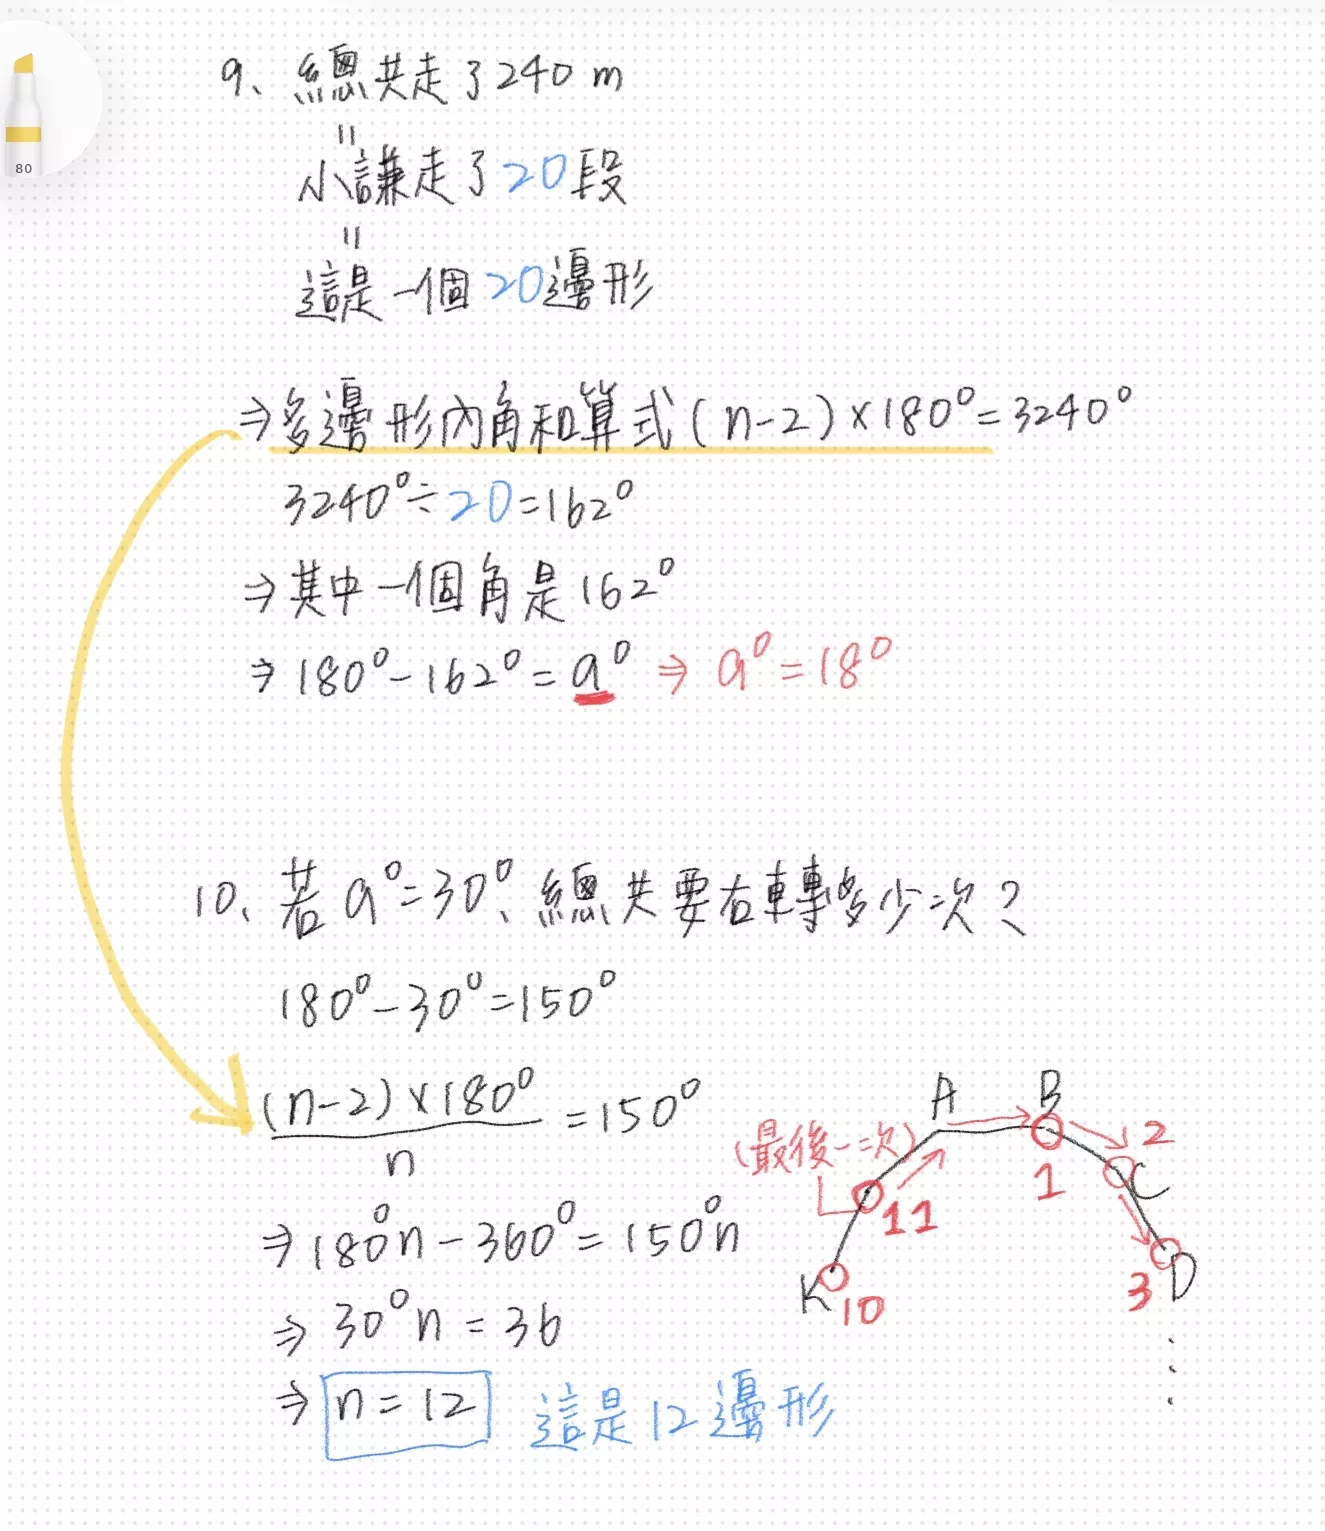 80
9、總共走了240 m
=
小謙走了20段
=
這是一個20邊形
⇒多邊形內角和算式(n-2)×180°=3240°
3240°÷20=162°
⇒其中一個角是162°
⇒180°-162°=a° ⇒ a°=18°
10、若a°=30°、總共要右轉多少次?
180°-30°=150°
(n-2)×180°
n
=150°
⇒180°n-360°=150°n
⇒30°n=36
⇒n=12 這是12邊形
A
B
(最後一次)
2
1
C
11
K
10
3
D
⋮